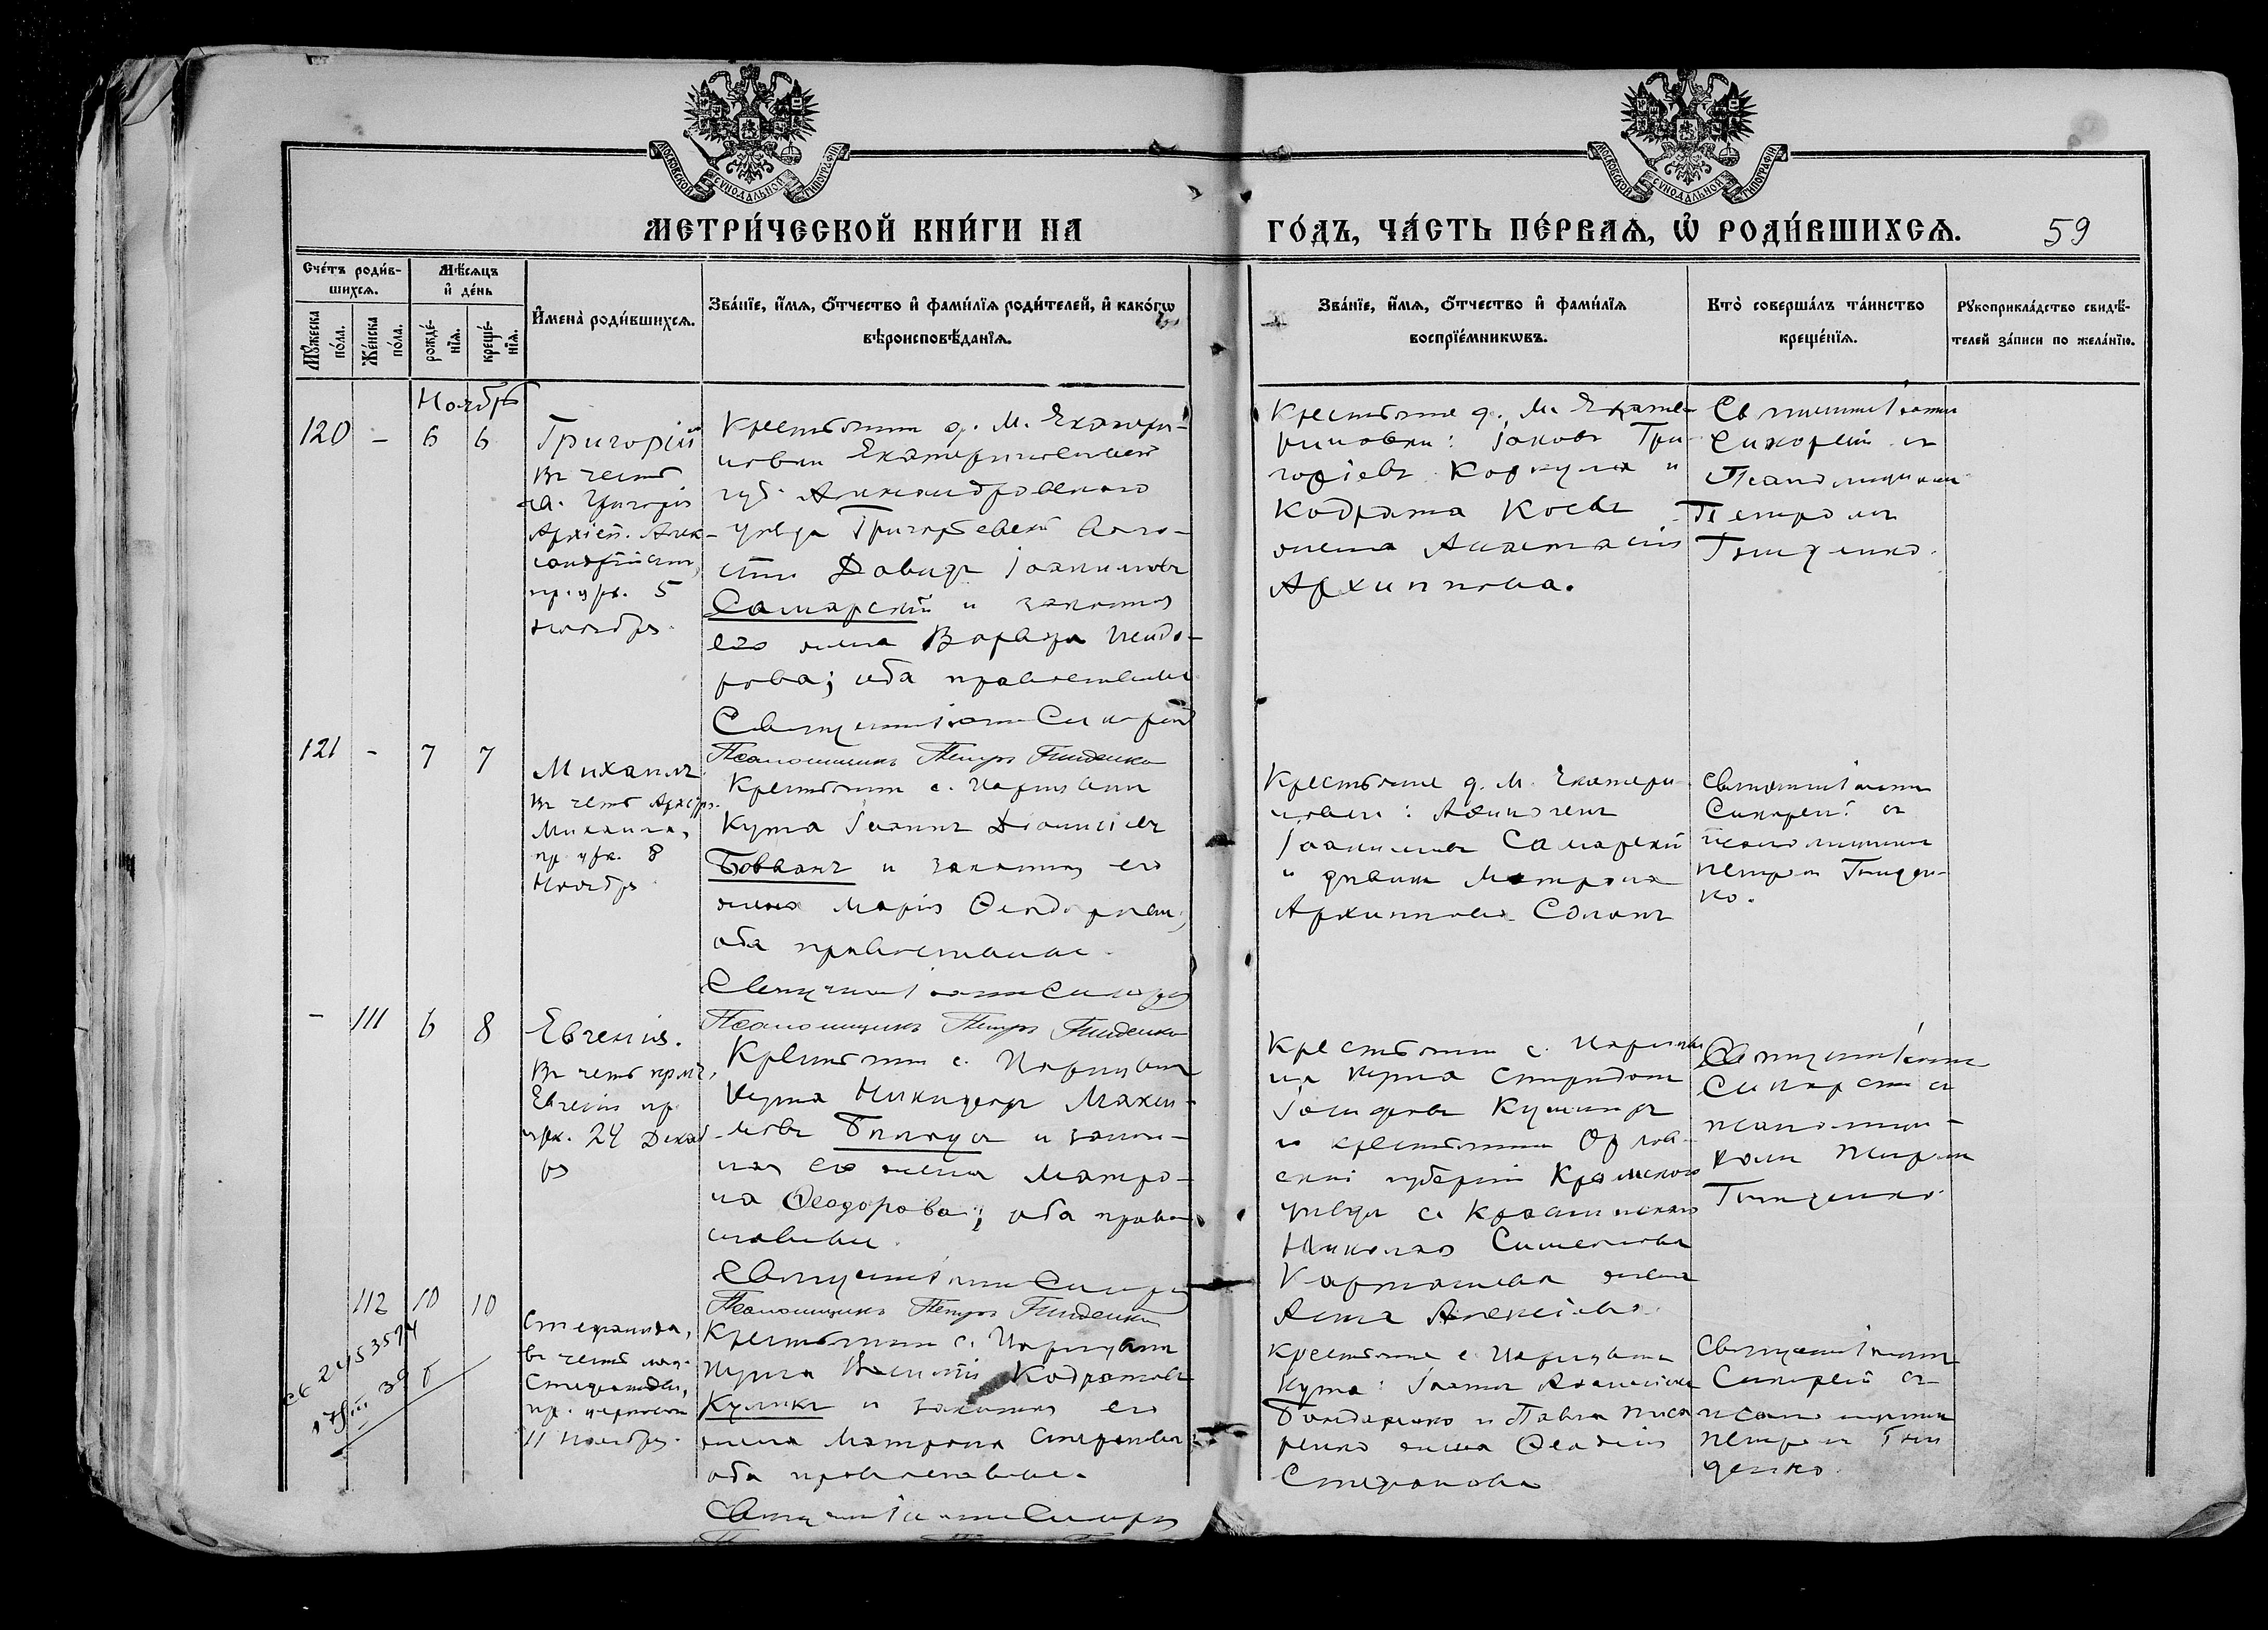 МОСКОВСКОЙ СѴНОДАЛЬНОЙ ТИПОГРАФІИ
МОСКОВСКОЙ СѴНОДАЛЬНОЙ ТИПОГРАФІИ
МЕТРИ́ЧЕСКОЙ КНИ́ГИ НА ГО́ДЪ, ЧА́СТЬ ПЕ́РВАѦ, Ѽ РОДИ́ВШИХСѦ. 59
Сче́тъ роди́в-
шихсѧ.
Мѣ́сѧцъ
и҆ де́нь
Мꙋ́жеска
по́ла.
Же́нска
по́ла.
рожде́-
нїѧ.
креще́-
нїѧ.
И҆мена̀ роди́вшихсѧ.
Зва́нїе, и҆́мѧ, ѻ҆́тчество и҆ фами́лїѧ роди́телей, и҆ како́гѡ
вѣроисповѣ́данїѧ.
Зва́нїе, и҆́мѧ, ѻ҆́тчество и҆ фами́лїѧ
воспрїе́мникѡвъ.
Кто̀ соверша́лъ та́инство
креще́нїѧ.
Рꙋкоприкла́дство свидѣ́-
телей за́писи по жела́нїю.
Ноябрь
120 - 6 6
Григорій
въ честь
св. Григорія
Архіеп. Алек-
сандрійск.,
пр. црк. 5
Ноября.
Крестьянинъ д. М. Екатери-
новки Екатеринославской
губ. Александровскаго
уѣзда Григорьевской воло-
сти Давидъ Іоакимовъ
Самарскій и законная
его жена Варвара Исидо-
рова; оба православные
Священникъ Сикорскій
Псаломщикъ Петръ Гниденко
Крестьяне д. М. Екате-
риновки: Іаковъ Гри-
горіевъ и
Кодрата
жена Анастасія
Архиппова.
Священникъ
Сикорскій съ
Псаломщикомъ
Петромъ
Гниденко.
121 - 7 7
Михаилъ
въ честь Архистр.
Михаила,
пр. црк. 8
Ноября
Крестьянинъ с. Царицына
Кута Іоаннъ Діонисіевъ
Бовванъ и законная его
жена Марія Ѳеодорова,
оба православные.
Священникъ Сикорскій
Псаломщикъ Петръ Гниденко
Крестьяне д. М. Екатери-
новки:
Іоакимовъ Самарскій
и дѣвица Матрона
Архиппова
Священникъ
Сикорскій съ
псаломщикомъ
Петромъ Гниден-
ко.
- 111 6 8
Евгенія.
Въ честь прмч.
Евгеніи пр.
црк. 24 Декаб-
ря
Крестьянинъ с. Царицына
Кута Никифоръ Макси-
мовъ и закон-
ная его жена Матро-
на Ѳеодорова; оба право-
славные.
Священникъ Сикорскій
Псаломщикъ Петръ Гниденко
Крестьянинъ с. Царицы-
на Кута Спиридонъ
и крестьянина Орлов-
ской губерніи Кромского
уѣзда с.
Николая Симеонова
жена
Анна Алексіева.
Священникъ
Сикорскій съ
псаломщи-
комъ Петромъ
Гниденко
112 10 10
Стефанида,
въ честь муч.
Стефаниды,
пр. церковью
11 Ноября.
Крестьянинъ с. Царицына
Кута Василій Кодратовъ
Куликъ и законная его
жена Матрона Стефанова;
оба православные.
Священникъ Сикорскій
Крестьяне с. Царицына
Кута: Іоаннъ
Бондаренко и Павла Писа-
ренко жена Ѳеодосія
Стефанова
Священникъ
Сикорскій съ
псаломщикомъ
Петромъ Гни-
денко.